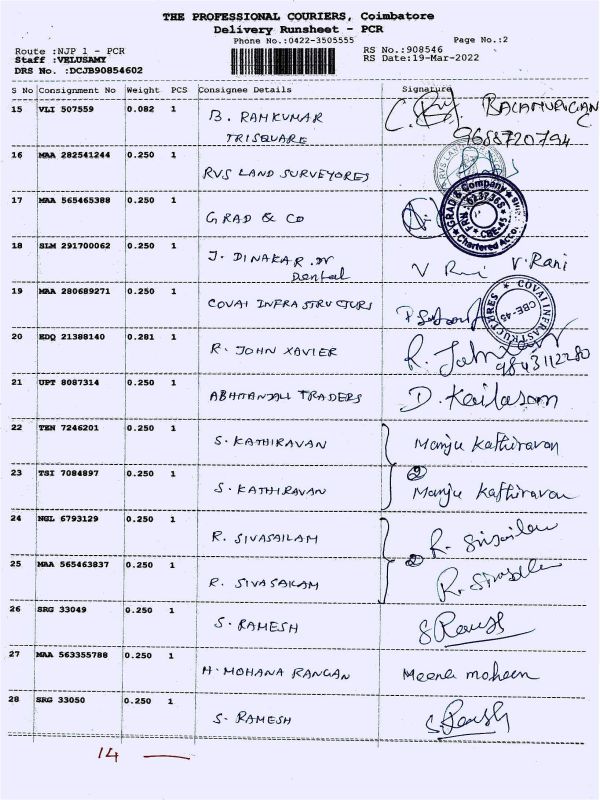 THE PROFESSIONAL COURIERS, Coimbatore
Delivery Runsheet - PCR
Phone No.:0422-3505555
Page No.:2
Route :NJP 1 - PCR
RS No.:908546
Staff :VELUSAMY
RS Date:19-Mar-2022
DRS No. :DCJB90854602
S No Consignment No Weight PCS Consignee Details Signature
15 VLI 507559 0.082 1 B. RAMKUMAR BALAMURUGAN
TRISQUARE 9688720794
16 MAA 282541244 0.250 1
RVS LAND SURVEYORES
17 MAA 565465388 0.250 1
GRAD & CO
GRAD & Company
FRN :
CBE-45
Chartered Acco
18 SLM 291700062 0.250 1 J. DINAKAR .DR
Dental V Rani V. Rani
19 MAA 280689271 0.250 1
COVAI INFRASTRUCTURS
COVAI INFRASTRUCTURES
CBE-45
20 EDQ 21388140 0.281 1
R. JOHN XAVIER R. John
9843112280
21 UPT 8087314 0.250 1
ABHTANJALI TRADERS D. Kailasam
22 TEN 7246201 0.250 1
S. KATHIRAVAN Manju Kathiravan
23 TSI 7084897 0.250 1 2
S. KATHIRAVAN Manju Kathiravan
24 NGL 6793129 0.250 1
R. SIVASAILAM
2
25 MAA 565463837 0.250 1
R. SIVASAKAM
26 SRG 33049 0.250 1
S. RAMESH S Ramesh
27 MAA 563355788 0.250 1
H. MOHANA RANGAN Meena mohan
28 SRG 33050 0.250 1
S. RAMESH S Ramesh
14 —